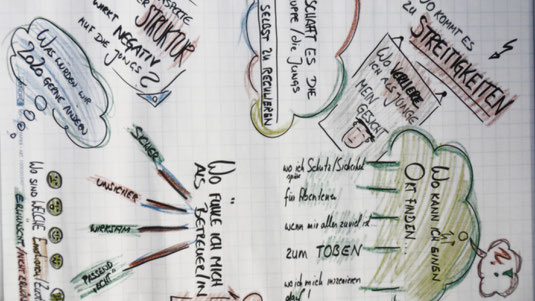 WIRKT NEGATIV
AUF DIE JUNGS?
STRUKTUR
SCHAFFT ES DIE
/ die JUNGS
SELBST ZU REGULIEREN
WO KOMMT ES
ZU
STREITIGKEITEN
WO VERLIERE
ICH ALS JUNGE
MEIN
GESICHT
WAS WÜRDEN WIR
2020 GERNE ÄNDERN
WO FÜHLE ICH MICH
ALS BETREUER/IN
SICHER
UNSICHER
WIRKSAM
PASSEND
"ECHT"
WO KANN ICH EINEN
ORT FINDEN...
wo ich Schutz/Sicherheit
für Abenteuer
wenn mir alles zuviel ist
ZUM TOBEN
wo ich mich inszenieren
darf!
WO SIND WELCHE